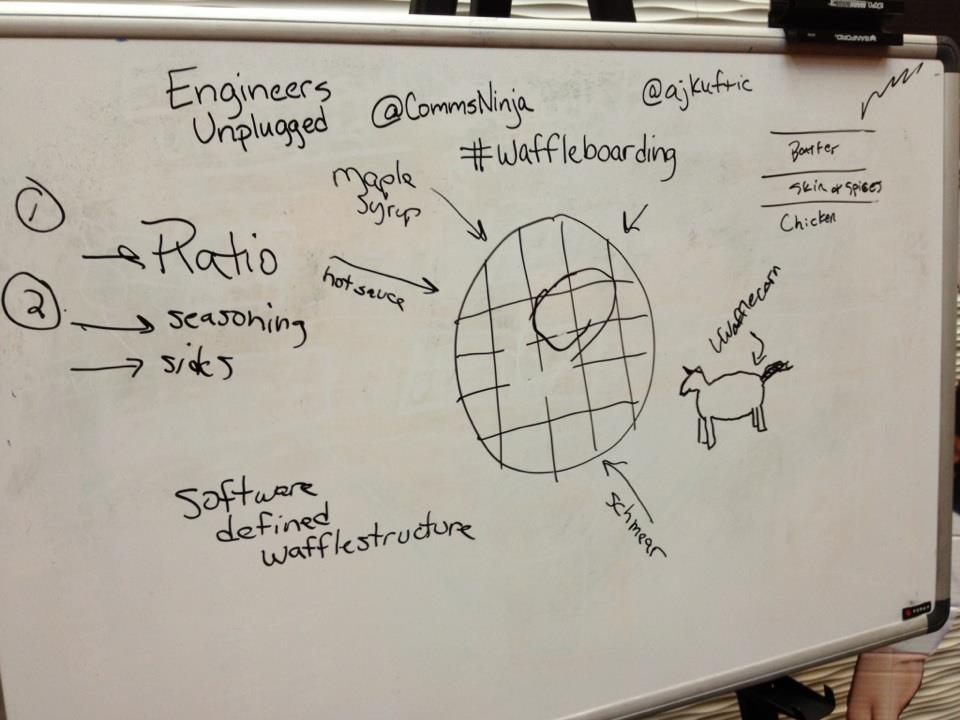 Engineers
Unplugged
@CommsNinja
@ajkuftic
#Waffleboarding
Batter
Skin & Spices
Chicken
Maple
Syrup
1
Ratio
hot sauce
2
seasoning
sides
Wafflecorn
Software
defined
wafflestructure
Schmear
EXPO
SANFORD